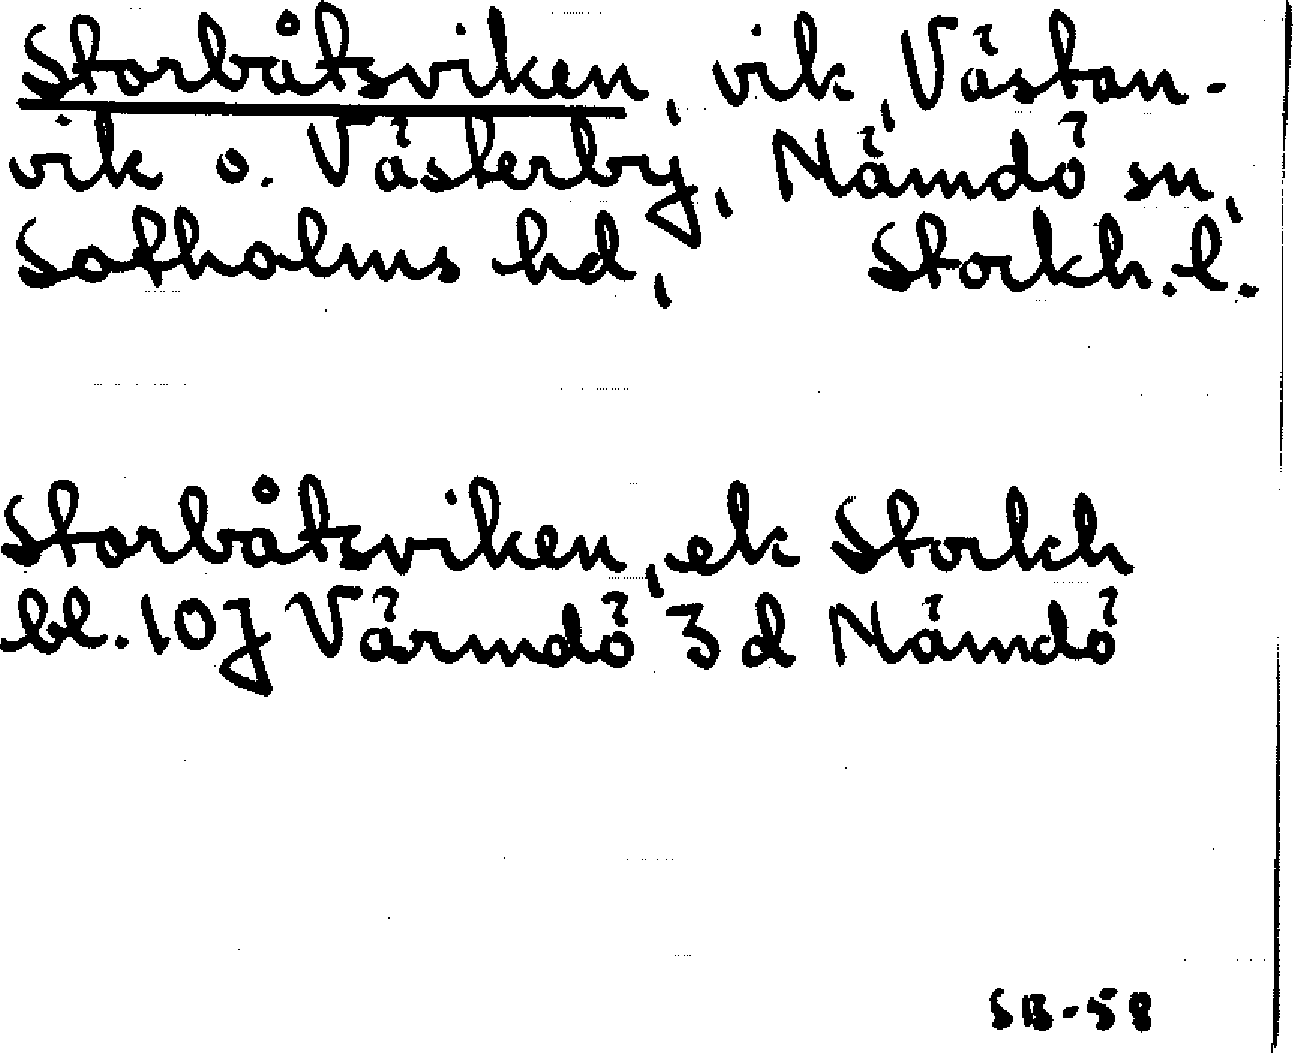 Storbåtsviken, vik, Västan-
vik o. Västerby, Nämdö sn,
Sotholms hd, Stockh. l.
Storbåtsviken, ek Stockh
bl. 107 Värmdö 3 d Nämdö
SB-58